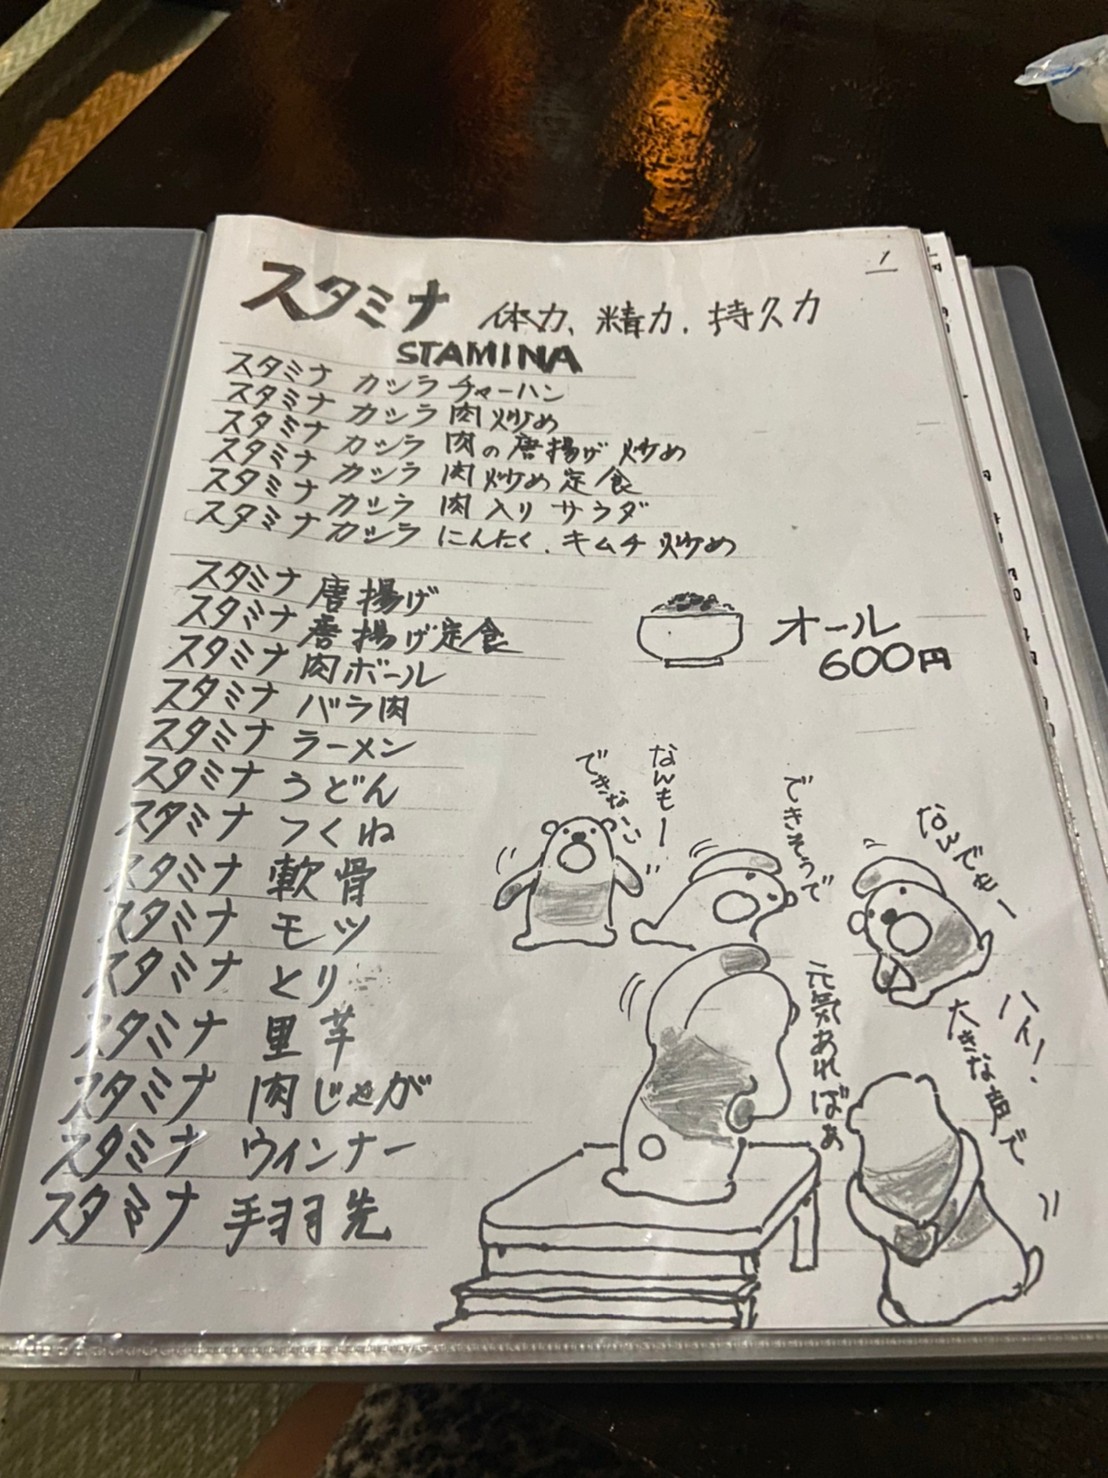 1
スタミナ 体力、精力、持久力
STAMINA
スタミナ カシラ チャーハン
スタミナ カシラ 肉炒め
スタミナ カシラ 肉の唐揚げ 炒め
スタミナ カシラ 肉炒め定食
スタミナ カシラ 肉入り サラダ
スタミナ カシラ にんたく、キムチ 炒め
スタミナ 唐揚げ
スタミナ 唐揚げ定食
スタミナ 肉ボール
スタミナ バラ肉
スタミナ ラーメン
スタミナ うどん
スタミナ つくね
スタミナ 軟骨
スタミナ モツ
スタミナ とり
スタミナ 里芋
スタミナ 肉じゃが
スタミナ ウィンナー
スタミナ 手羽先
オール
600円
なんもー
できない
できそうで
なんでもー
元気あればぁ
ハイ!
大きな声で